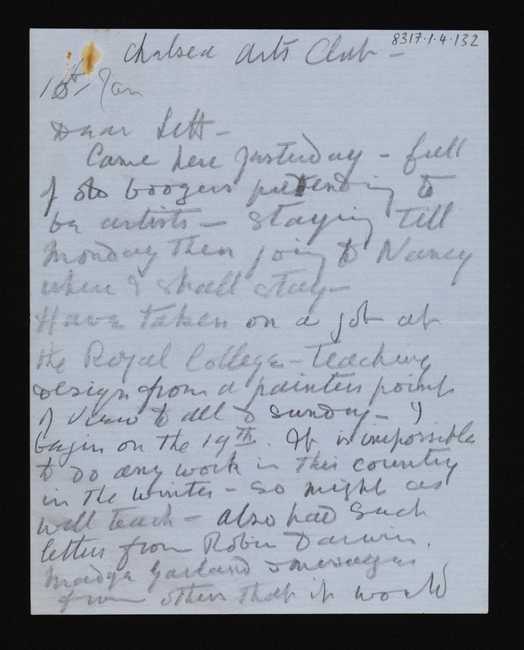 8317·1·4·132
Chelsea Arts Club -
Jan
Dear Lett -
Came here yesterday - full
of old boogers pretending to
be artists - Staying till
Monday then going to Nancy
where I shall stay -
Have taken on a job at
the Royal College - teaching
design from a painters point
of view to all & sunday - I
begin on the 19th. It is impossible
to do any work in this country
in the winter - so might as
well teach - also had such
letters from Robin Darwin,
Madge Garland & messages
from others that it would